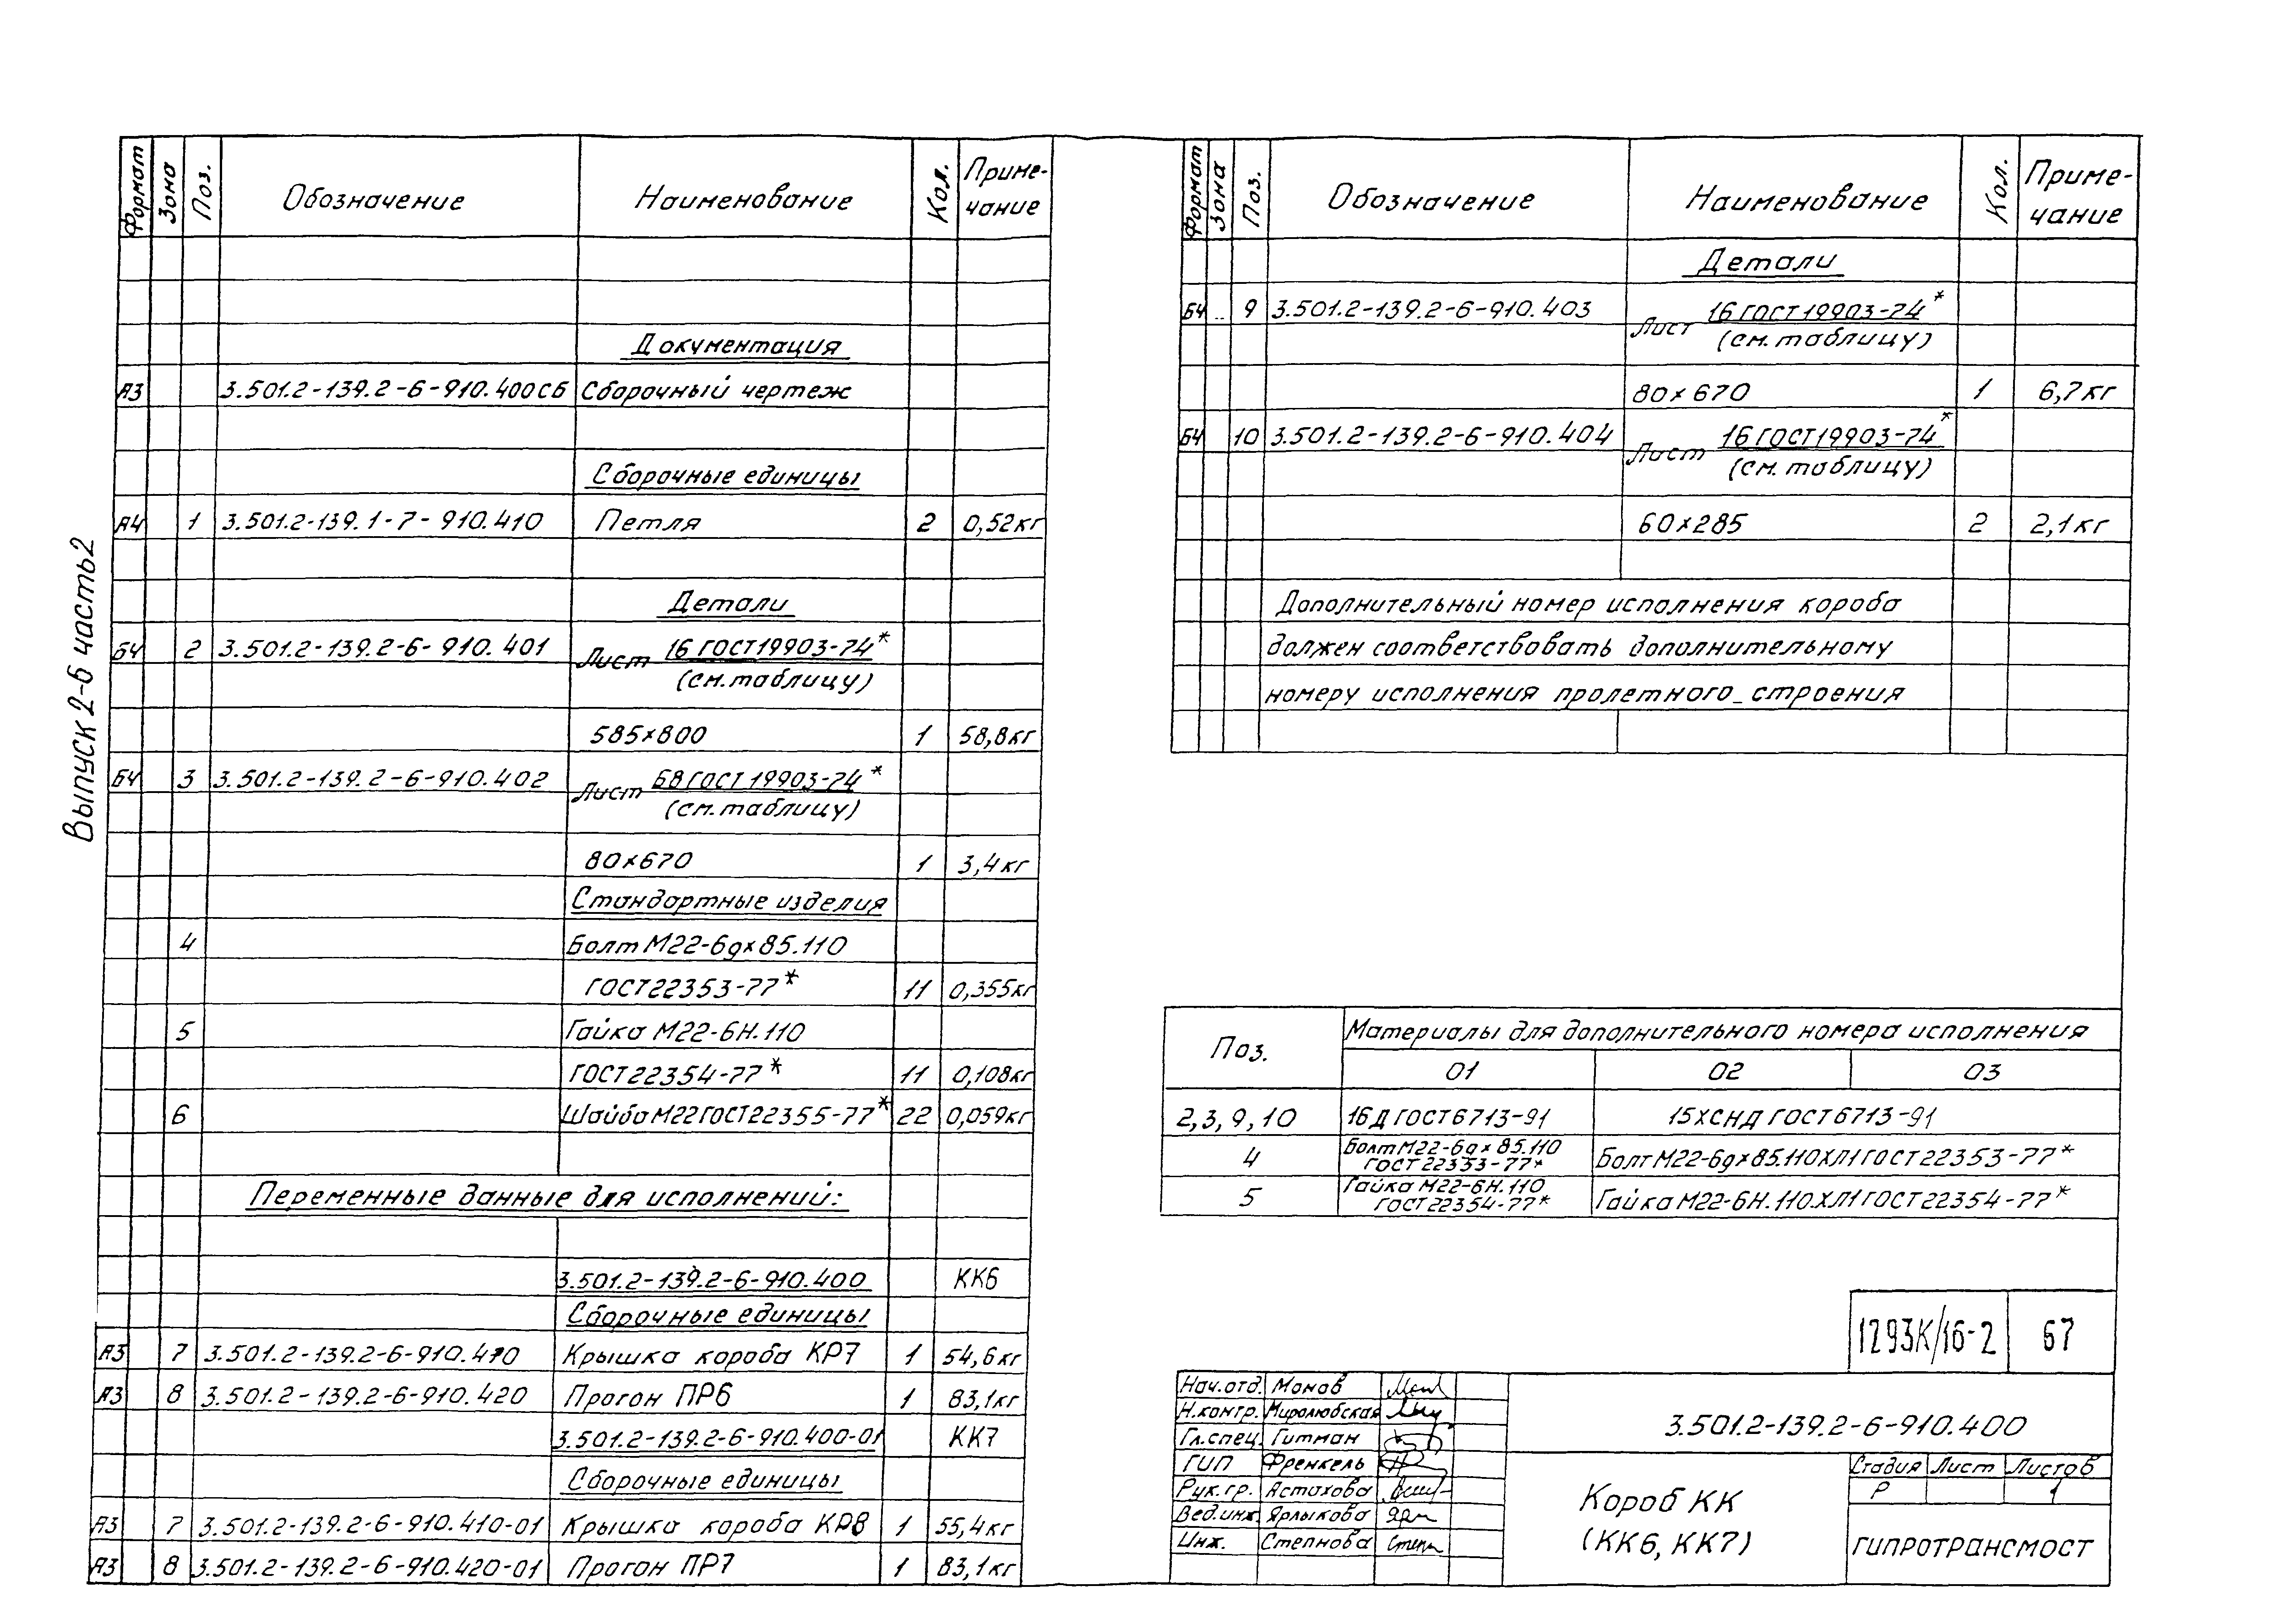 Выпуск 2-6 часть 2
Формат Зона Поз. Обозначение Наименование Кол. Приме-чание
Документация
А3 3.501.2-139.2-6-910.400СБ Сборочный чертеж
Сборочные единицы
А4 1 3.501.2-139.1-7-910.410 Петля 2 0,52кг
Детали
БЧ 2 3.501.2-139.2-6-910.401 Лист 16 ГОСТ 19903-74*
(см. таблицу)
585×800 1 58,8кг
БЧ 3 3.501.2-139.2-6-910.402 Лист Б8 ГОСТ 19903-74*
(см. таблицу)
80×670 1 3,4кг
Стандартные изделия
4 Болт М22-6g×85.110
ГОСТ 22353-77* 11 0,355кг
5 Гайка М22-6Н.110
ГОСТ 22354-77* 11 0,108кг
6 Шайба М22 ГОСТ 22355-77* 22 0,059кг
Переменные данные для исполнений:
3.501.2-139.2-6-910.400 КК6
Сборочные единицы
А3 7 3.501.2-139.2-6-910.410 Крышка короба КР7 1 54,6кг
А3 8 3.501.2-139.2-6-910.420 Прогон ПР6 1 83,1кг
3.501.2-139.2-6-910.400-01 КК7
Сборочные единицы
А3 7 3.501.2-139.2-6-910.410-01 Крышка короба КР8 1 55,4кг
А3 8 3.501.2-139.2-6-910.420-01 Прогон ПР7 1 83,1кг
Формат Зона Поз. Обозначение Наименование Кол. Приме-чание
Детали
БЧ 9 3.501.2-139.2-6-910.403 Лист 16 ГОСТ 19903-74*
(см. таблицу)
80×670 1 6,7кг
БЧ 10 3.501.2-139.2-6-910.404 Лист 16 ГОСТ 19903-74*
(см. таблицу)
60×285 2 2,1кг
Дополнительный номер исполнения короба
должен соответствовать дополнительному
номеру исполнения пролетного строения
Поз. Материалы для дополнительного номера исполнения
01 02 03
2,3,9,10 16Д ГОСТ 6713-91 15ХСНД ГОСТ 6713-91
4 Болт М22-6g×85.110 ГОСТ 22353-77* Болт М22-6g×85.110ХЛ1 ГОСТ 22353-77*
5 Гайка М22-6Н.110 ГОСТ 22354-77* Гайка М22-6Н.110.ХЛ1 ГОСТ 22354-77*
1293К/16-2 67
Нач.отд. Монов
Н.контр. Миролюбская
Гл.спец. Гитман
ГИП Френкель
Рук.гр. Астахова
Вед.инж. Ярлыкова
Инж. Степнова
3.501.2-139.2-6-910.400
Короб КК
(КК6, КК7)
Стадия Лист Листов
Р 1
ГИПРОТРАНСМОСТ